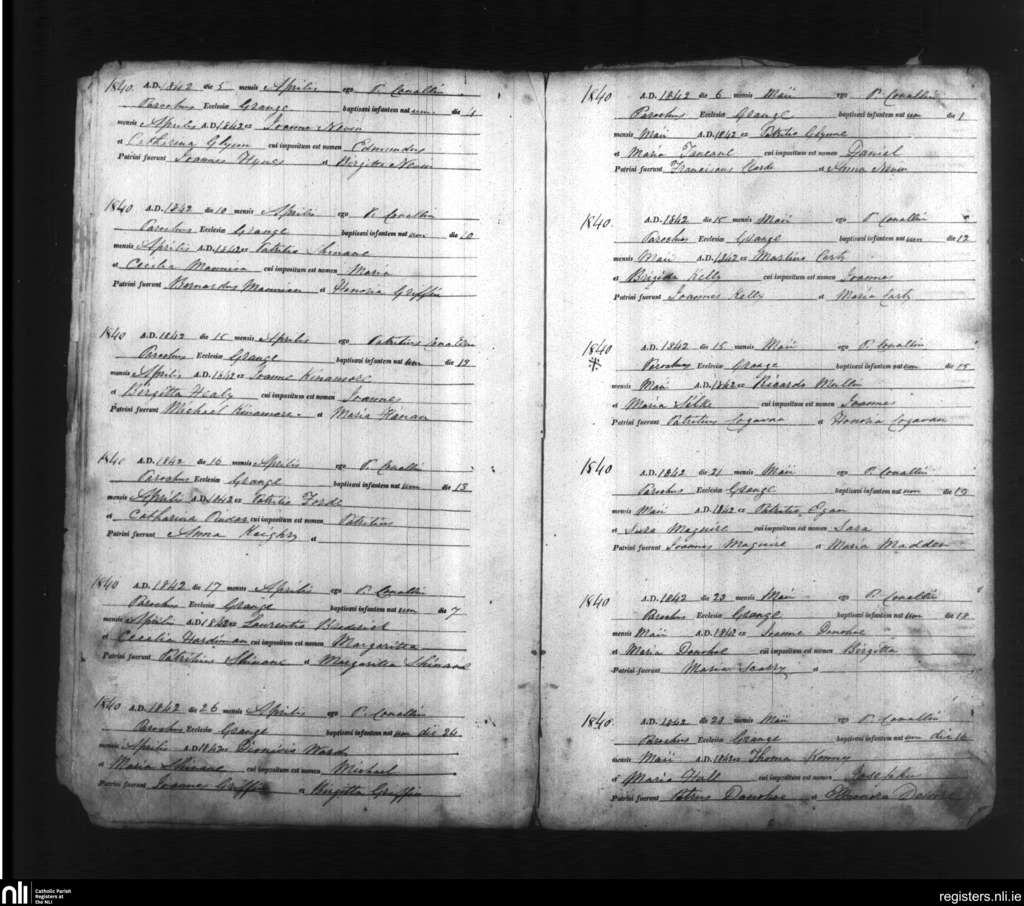 1840 A.D. 1842 die 5 mensis Aprilis ego P. Conallin
Parochus Ecclesiæ Grange baptisavi infantem natum die 4
mensis Aprilis A.D. 1842 ex Joanne Neven
et Catharina Glynn cui impositum est nomen Edmundus
Patrini fuerunt Joannes Hynes et Birgitta Neven
1840 A.D. 1842 die 10 mensis Aprilis ego P. Conallin
Parochus Ecclesiæ Grange baptisavi infantem natum die 10
mensis Aprilis A.D. 1842 ex Patritio Shinane
et Cecilia cui impositum est nomen Maria
Patrini fuerunt Bernardus et Honoria Griffin
1840 A.D. 1842 die 15 mensis Aprilis ego Patritius Conallin
Parochus Ecclesiæ Grange baptisavi infantem natum die 12
mensis Aprilis A.D. 1842 ex Joanne Kinamore
et Birgitta Healy cui impositum est nomen Joannes
Patrini fuerunt Michael Kinamore et Maria Hanan
1840 A.D. 1842 die 16 mensis Aprilis ego P. Conallin
Parochus Ecclesiæ Grange baptisavi infantem natum die 13
mensis Aprilis A.D. 1842 ex Patritio Forde
et Catharina cui impositum est nomen Patritius
Patrini fuerunt Anna Keighry et
1840 A.D. 1842 die 17 mensis Aprilis ego P. Conallin
Parochus Ecclesiæ Grange baptisavi infantem natum die 7
mensis Aprilis A.D. 1842 ex Laurentio Broderick
et Cecelia Hardiman cui impositum est nomen Margaritta
Patrini fuerunt Patritius Shinane et Margaritta Shinane
1840 A.D. 1842 die 26 mensis Aprilis ego P. Conallin
Parochus Ecclesiæ Grange baptisavi infantem natum die 24
mensis Aprilis A.D. 1842 ex Dionisio Ward
et Maria Shinane cui impositum est nomen Michael
Patrini fuerunt Joannes Griffin et Birgitta Griffin
1840 A.D. 1842 die 6 mensis Maii ego P. Conallin
Parochus Ecclesiæ Grange baptisavi infantem natum die 1
mensis Maii A.D. 1842 ex Patritio Glynne
et Maria cui impositum est nomen Daniel
Patrini fuerunt Franciscus et Anna Neven
1840. A.D. 1842 die 15 mensis Maii ego P. Conallin
Parochus Ecclesiæ Grange baptisavi infantem natum die 12
mensis Maii A.D. 1842 ex Martino Carty
et Brigida Kelly cui impositum est nomen Joannes
Patrini fuerunt Joannes Kelly et Maria Carty
1840 A.D. 1842 die 15 mensis Maii ego P. Conallin
Parochus Ecclesiæ Grange baptisavi infantem natum die 15
mensis Maii A.D. 1842 ex Ricardo Mullin
et Maria Silke cui impositum est nomen Joannes
Patrini fuerunt Patritius Cogavan et Honoria Cogavan
1840 A.D. 1842 die 21 mensis Maii ego P. Conallin
Parochus Ecclesiæ Grange baptisavi infantem natum die 19
mensis Maii A.D. 1842 ex Patritio Egan
et Sara Maguire cui impositum est nomen Sara
Patrini fuerunt Joannes Maguire et Maria Madden
1840 A.D. 1842 die 23 mensis Maii ego P. Conallin
Parochus Ecclesiæ Grange baptisavi infantem natum die 18
mensis Maii A.D. 1842 ex Joanne Donohue
et Maria Donohoe cui impositum est nomen Birgitta
Patrini fuerunt Maria et
1840. A.D. 1842 die 23 mensis Maii ego P. Conallin
Parochus Ecclesiæ Grange baptisavi infantem natum die 16
mensis Maii A.D. 1842 ex Thoma Kenny
et Maria Hall cui impositum est nomen
Patrini fuerunt Petrus Donohoe et
nli Catholic Parish
Registers at
the NLI
registers.nli.ie